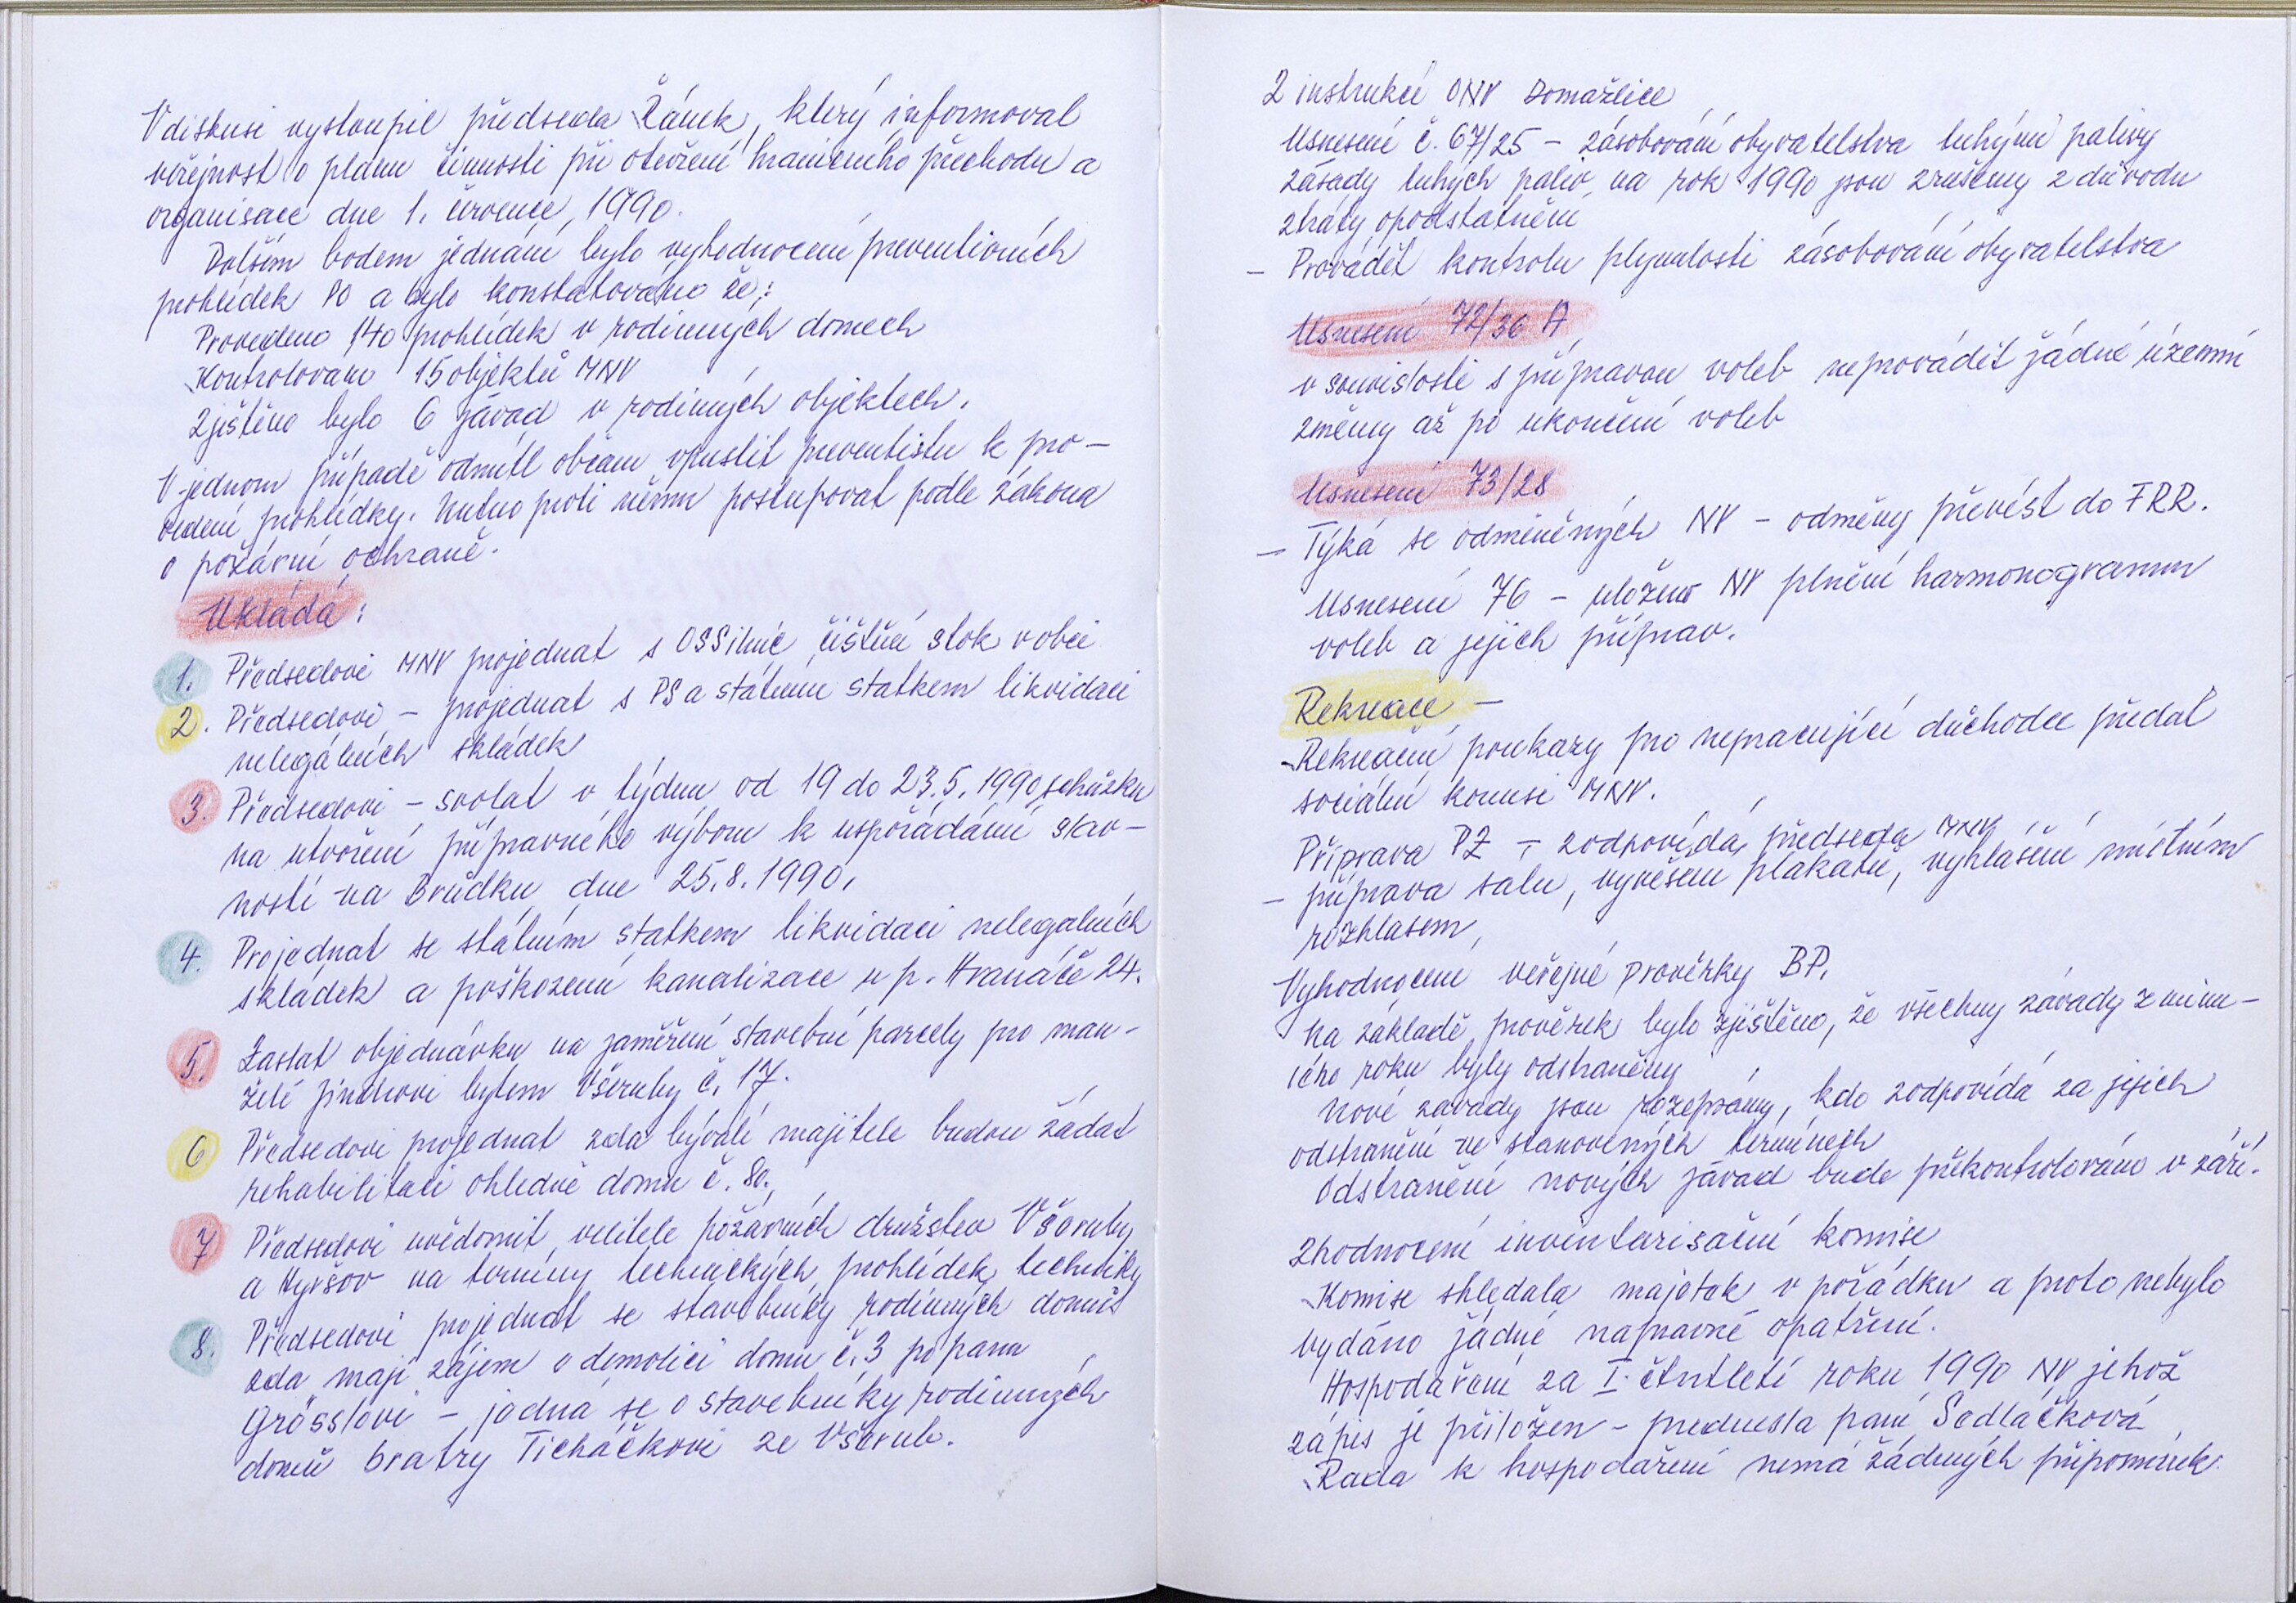 V diskusi vystoupil předseda Žánek, který informoval
veřejnost o plánu činnosti při otevření hraničního přechodu a
organisace dne 1. července, 1990.
Dalším bodem jednání bylo vyhodnocení preventivních
prohlídek PO a bylo konstatováno že:
Provedeno 140 prohlídek v rodinných domech
Kontrolováno 15 objektů MNV
Zjištěno bylo 6 závad v rodinných objektech.
V jednom případě odmítl občan vpustit preventistu k pro-
vedení prohlídky. Nutno proti němu postupovat podle zákona
o požární ochraně.
Ukládá:
1. Předsedovi MNV projednat s OSSilnic čištění stok v obci
2. Předsedovi - projednat s PS a státním statkem likvidaci
nelegálních skládek
3. Předsedovi - svolat v týdnu od 19 do 23.5.1990 schůzku
na utvoření přípravného výboru k uspořádání slav-
ností na Brůdku dne 25.8.1990.
4. Projednat se státním statkem likvidaci nelegálních
skládek a poškození kanalizace u p. Hranáče 24.
5. Zaslat objednávku na zaměření stavební parcely pro man-
želé bytem Všeruby č. 17.
6 Předsedovi projednat zda bývalí majitele budou žádat
rehabilitaci ohledně domu č. 80.
7 Předsedovi uvědomit velitele požárních družstev Všeruby
a Hyršov na termíny technických prohlídek techniky
8. Předsedovi projednat se stavebníky rodinných domů
zda mají zájem o demolici domu č. 3 po panu
Grösslovi - jedná se o stavebníky rodinných
domů bratry Ticháčkovi ze Všerub.
Z instrukcí ONV Domažlice
Usnesení č. 67/25 - zásobování obyvatelstva tuhými palivy
zásady tuhých paliv na rok 1990 jsou zrušeny z důvodu
ztráty opodstatnění
- Provádět kontrolu plynulosti zásobování obyvatelstva
Usnesení 72/36 A
v souvislosti s přípravou voleb neprovádět žádné územní
změny až po ukončení voleb
Usnesení 73/28
- Týká se odměněných NV - odměny převést do FRR.
Usnesení 76 - uloženo NV plnění harmonogramu
voleb a jejich příprav.
Rekreace -
- Rekreační poukazy pro nepracující důchodce předat
sociální komisi MNV.
Příprava PZ - zodpovídá předseda MNV
- příprava sálu, vyvěšení plakátů, vyhlášení místním
rozhlasem,
Vyhodnocení veřejné prověrky BP.
Na základě prověrek bylo zjištěno, že všechny závady z minu-
lého roku byly odstraněny
Nové závady jsou rozepsány, kdo zodpovídá za jejich
odstranění ve stanovených termínech
Odstranění nových závad bude překontrolováno v září.
Zhodnocení inventarisační komise
Komise shledala majetek v pořádku a proto nebylo
vydáno žádné nápravné opatření.
Hospodaření za I. čtvrtletí roku 1990 NV jehož
zápis je přiložen - přednesla paní Sedláčková
Rada k hospodaření nemá žádných připomínek.